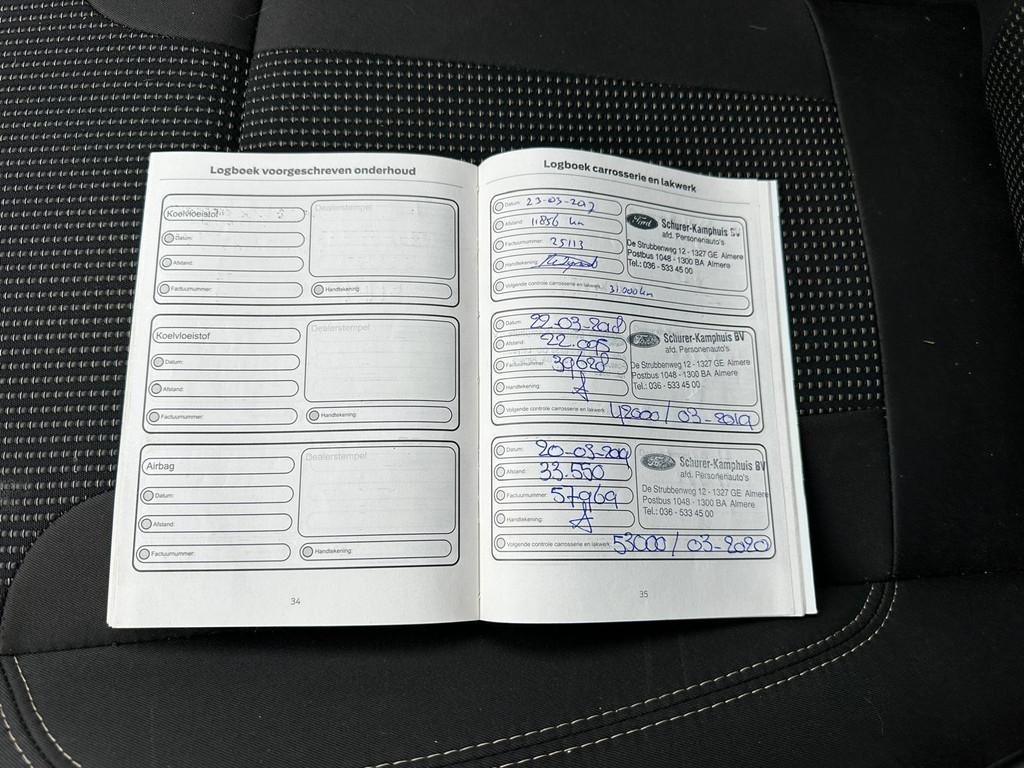 Logboek voorgeschreven onderhoud
Koelvloeistof
Dealerstempel
Datum:
Afstand:
Factuurnummer:
Handtekening:
Koelvloeistof
Dealerstempel
Datum:
Afstand:
Factuurnummer:
Handtekening:
Airbag
Dealerstempel
Datum:
Afstand:
Factuurnummer:
Handtekening:
34
Logboek carrosserie en lakwerk
Datum: 23-03-2017
Afstand: 11856 km
Factuurnummer: 25113
Handtekening:
Volgende controle carrosserie en lakwerk: 31.000km
Ford Schurer-Kamphuis BV
afd. Personenauto's
De Strubbenweg 12 - 1327 GE Almere
Postbus 1048 - 1300 BA Almere
Tel.: 036 - 533 45 00
Datum: 22-03-2018
Afstand: 22.005
Factuurnummer: 39628
Handtekening:
Volgende controle carrosserie en lakwerk: 42000 / 03-2019
Ford Schurer-Kamphuis BV
afd. Personenauto's
De Strubbenweg 12 - 1327 GE Almere
Postbus 1048 - 1300 BA Almere
Tel.: 036 - 533 45 00
Datum: 20-03-2019
Afstand: 33.550
Factuurnummer: 57969
Handtekening:
Volgende controle carrosserie en lakwerk: 53000 / 03-2020
Ford Schurer-Kamphuis BV
afd. Personenauto's
De Strubbenweg 12 - 1327 GE Almere
Postbus 1048 - 1300 BA Almere
Tel.: 036 - 533 45 00
35